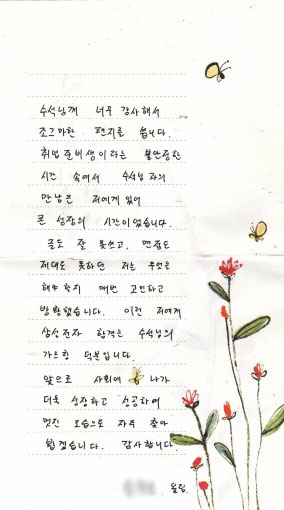 수석님께 너무 감사해서
조그마한 편지를 씁니다.
취업준비생이라는 불안정한
시간 속에서 수석님과의
만남은 저에게 있어
큰 성장의 시간이었습니다.
글도 잘 못쓰고, 면접도
제대로 못하던 저는 무엇을
해야 할지 매번 고민하고
방황했습니다. 이런 저에게
삼성전자 합격은 수석님의
가르침 덕분입니다.
앞으로 사회에 나가
더욱 성장하고 성공하여
멋진 모습으로 자주 찾아
뵙겠습니다. 감사합니다.
올림.